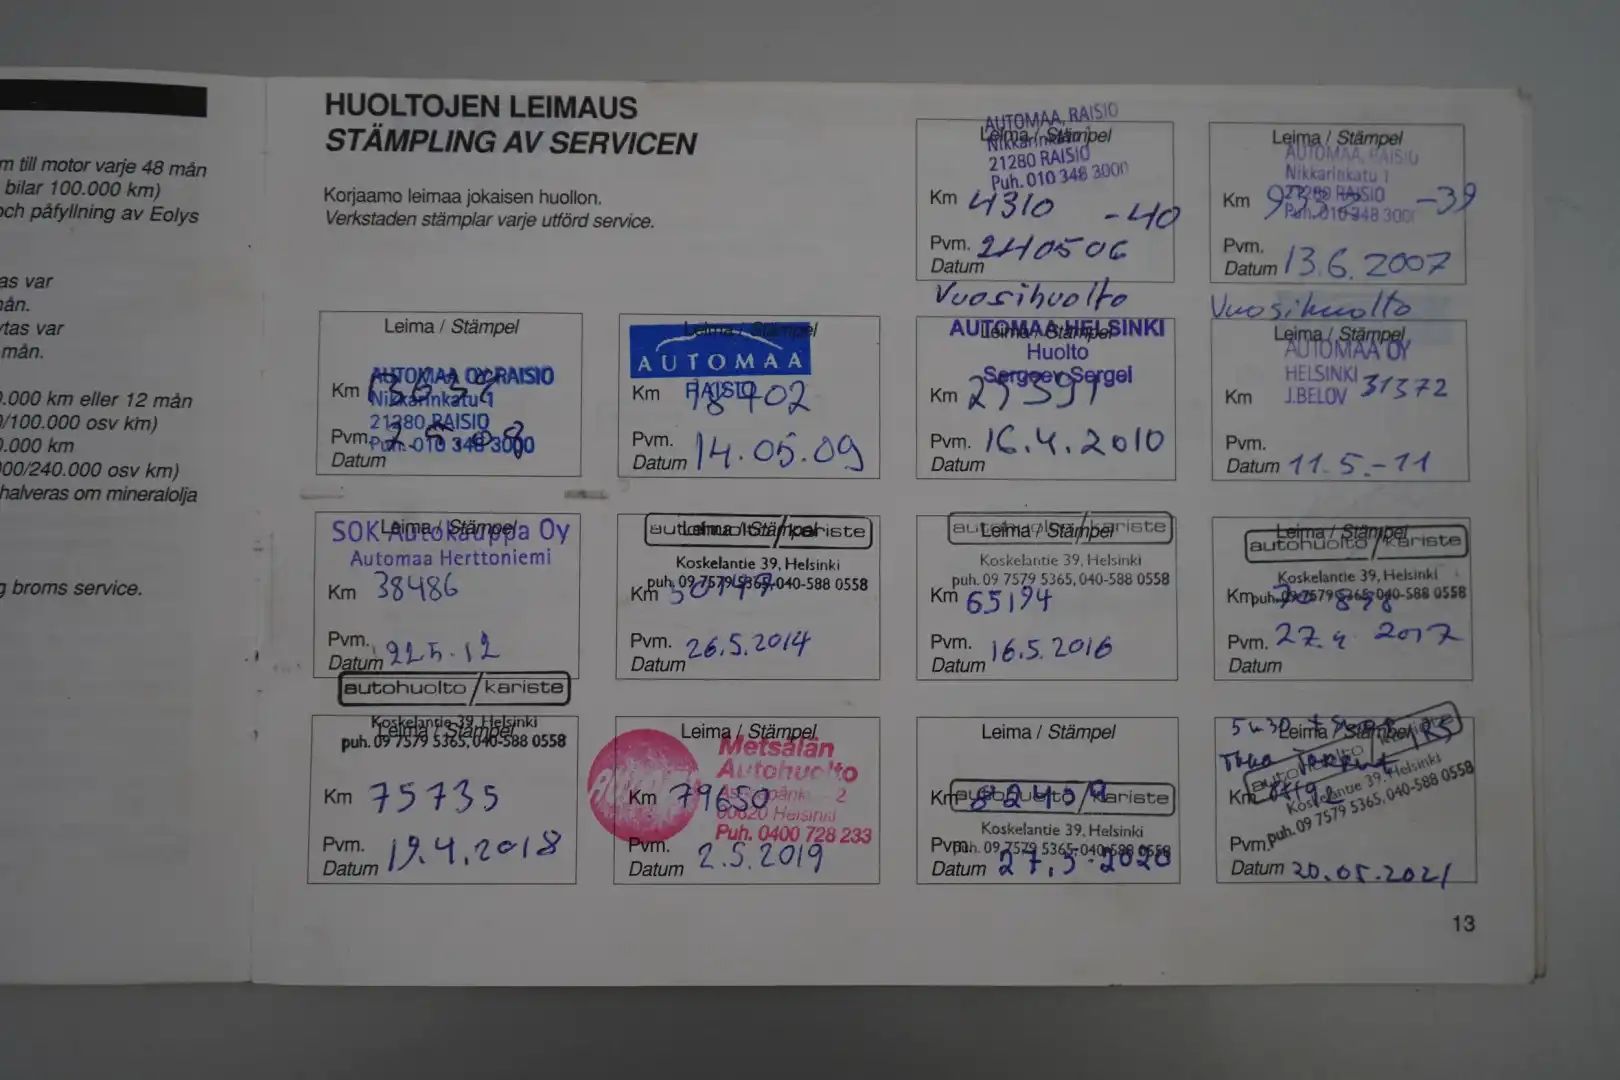 m till motor varje 48 mån
bilar 100.000 km)
och påfyllning av Eolys
as var
ån.
tas var
mån.
.000 km eller 12 mån
/100.000 osv km)
.000 km
00/240.000 osv km)
halveras om mineralolja
g broms service.
HUOLTOJEN LEIMAUS
STÄMPLING AV SERVICEN
Korjaamo leimaa jokaisen huollon.
Verkstaden stämplar varje utförd service.
AUTOMAA, RAISIO
Leima / Stämpel
Nikkarinkatu 1
21280 RAISIO
Puh. 010 348 3000
Km 4310 -40
Pvm. 240506
Datum
Vuosihuolto
Leima / Stämpel
AUTOMAA, RAISIO
Nikkarinkatu 1
21280 RAISIO
Puh. 010 348 3000
Km -39
Pvm.
Datum 13.6.2007
Vuosihuolto
Leima / Stämpel
AUTOMAA OY RAISIO
Km
Nikkarinkatu 1
21280 RAISIO
Pvm.
Puh. 010 348 3000
Datum
Leima / Stämpel
AUTOMAA
RAISIO
Km
Pvm.
Datum 14.05.09
AUTOMAA HELSINKI
Leima / Stämpel
Huolto
Sergeev Sergei
Km
Pvm. 16.4.2010
Datum
Leima / Stämpel
AUTOMAA OY
HELSINKI
J.BELOV
Km 31372
Pvm.
Datum 11.5.-11
Leima / Stämpel
SOK Autokauppa Oy
Automaa Herttoniemi
Km 38486
Pvm.
Datum 225.12
Leima / Stämpel
autohuolto/kariste
Koskelantie 39, Helsinki
puh. 09 7579 5365, 040-588 0558
Km
Pvm. 26.5.2014
Datum
Leima / Stämpel
autohuolto/kariste
Koskelantie 39, Helsinki
puh. 09 7579 5365, 040-588 0558
Km 65194
Pvm. 16.5.2016
Datum
Leima / Stämpel
autohuolto/kariste
Koskelantie 39, Helsinki
Km
puh. 09 7579 5365, 040-588 0558
Pvm. 27.4.2017
Datum
autohuolto/kariste
Koskelantie 39, Helsinki
Leima / Stämpel
puh. 09 7579 5365, 040-588 0558
Km 75735
Pvm.
Datum 19.4.2018
Leima / Stämpel
Metsälän
Autohuolto
Km 79650
2
00620 Helsinki
Puh. 0400 728 233
Pvm.
Datum 2.5.2019
Leima / Stämpel
Km 82459
autohuolto/kariste
Koskelantie 39, Helsinki
Pvm.
puh. 09 7579 5365, 040-588 0558
Datum 27.3.2020
5w30
Leima / Stämpel
autohuolto/kariste
Koskelantie 39, Helsinki
Km
puh. 09 7579 5365, 040-588 0558
Pvm.
Datum 20.05.2021
13